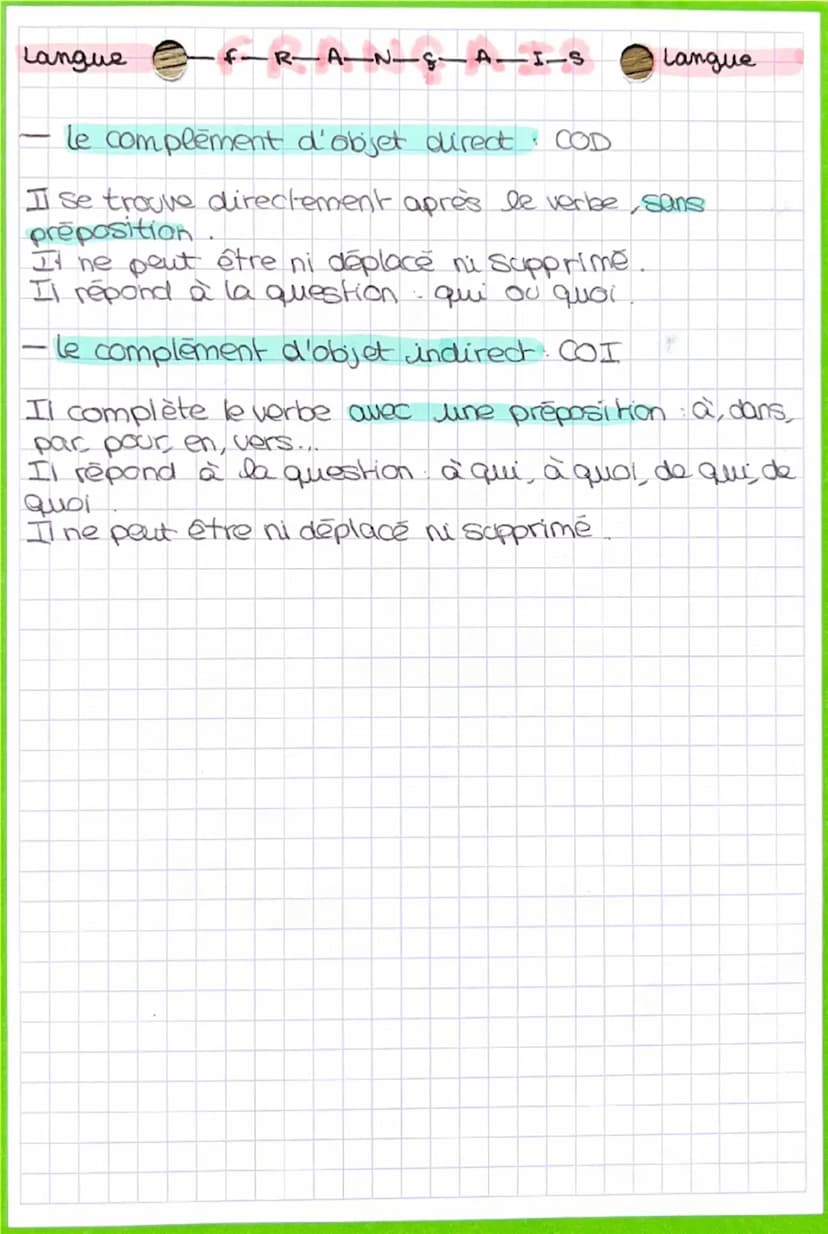 Langue F-R-A-N-Ç-A-I-S Langue
- le complément d'objet direct : COD
Il se trouve directement après le verbe, sans
préposition.
Il ne peut être ni déplacé ni supprimé.
Il répond à la question : qui ou quoi.
- le complément d'objet indirect : COI
Il complète le verbe avec une préposition : à, dans,
par, pour, en, vers...
Il répond à la question : à qui, à quoi, de qui, de
quoi.
Il ne peut être ni déplacé ni supprimé.